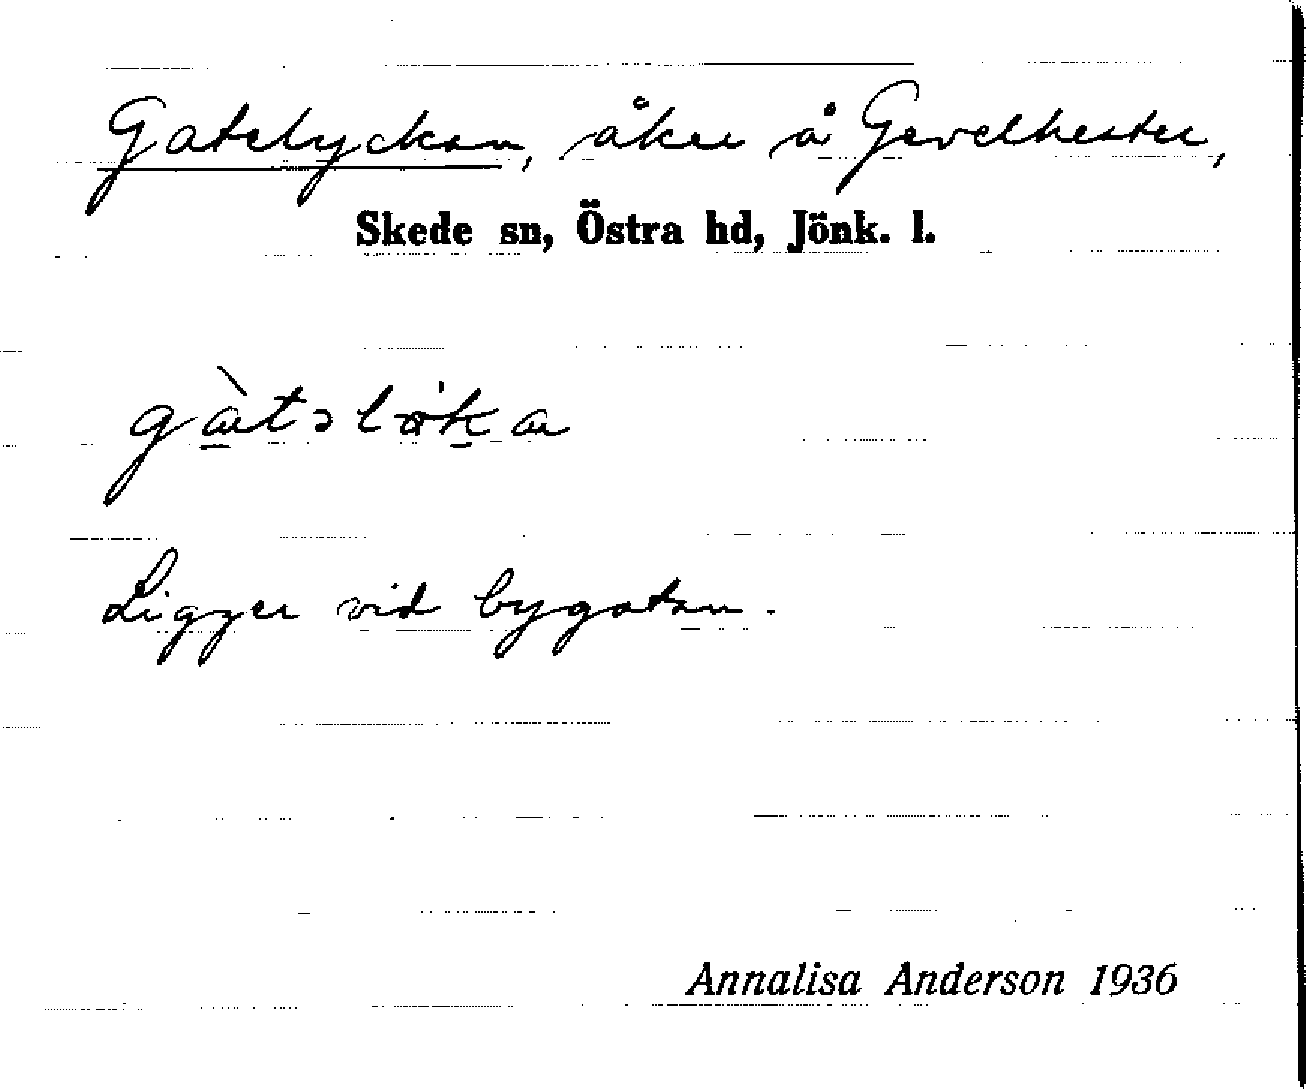 Gatelyckan, åker å Gevelhester,
Skede sn, Östra hd, Jönk. l.
gàtəlø̍ka
Ligger vid bygatan.
Annalisa Anderson 1936